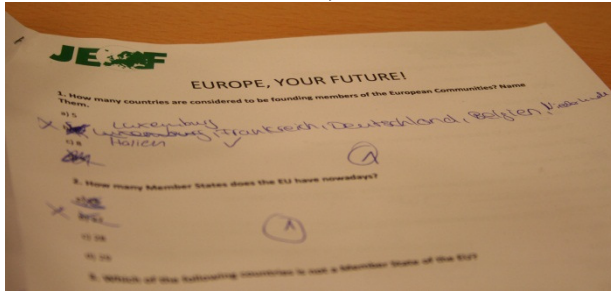 JEF
EUROPE, YOUR FUTURE!
1. How many countries are considered to be founding members of the European Communities? Name
Them.
a) 5
Luxemburg
X Luxemburg, Frankreich, Deutschland, Belgien,
c) 8
Italien ✓
1
2. How many Member States does the EU have nowadays?
X
1
c) 28
3. Which of the following countries is not a Member State of the EU?